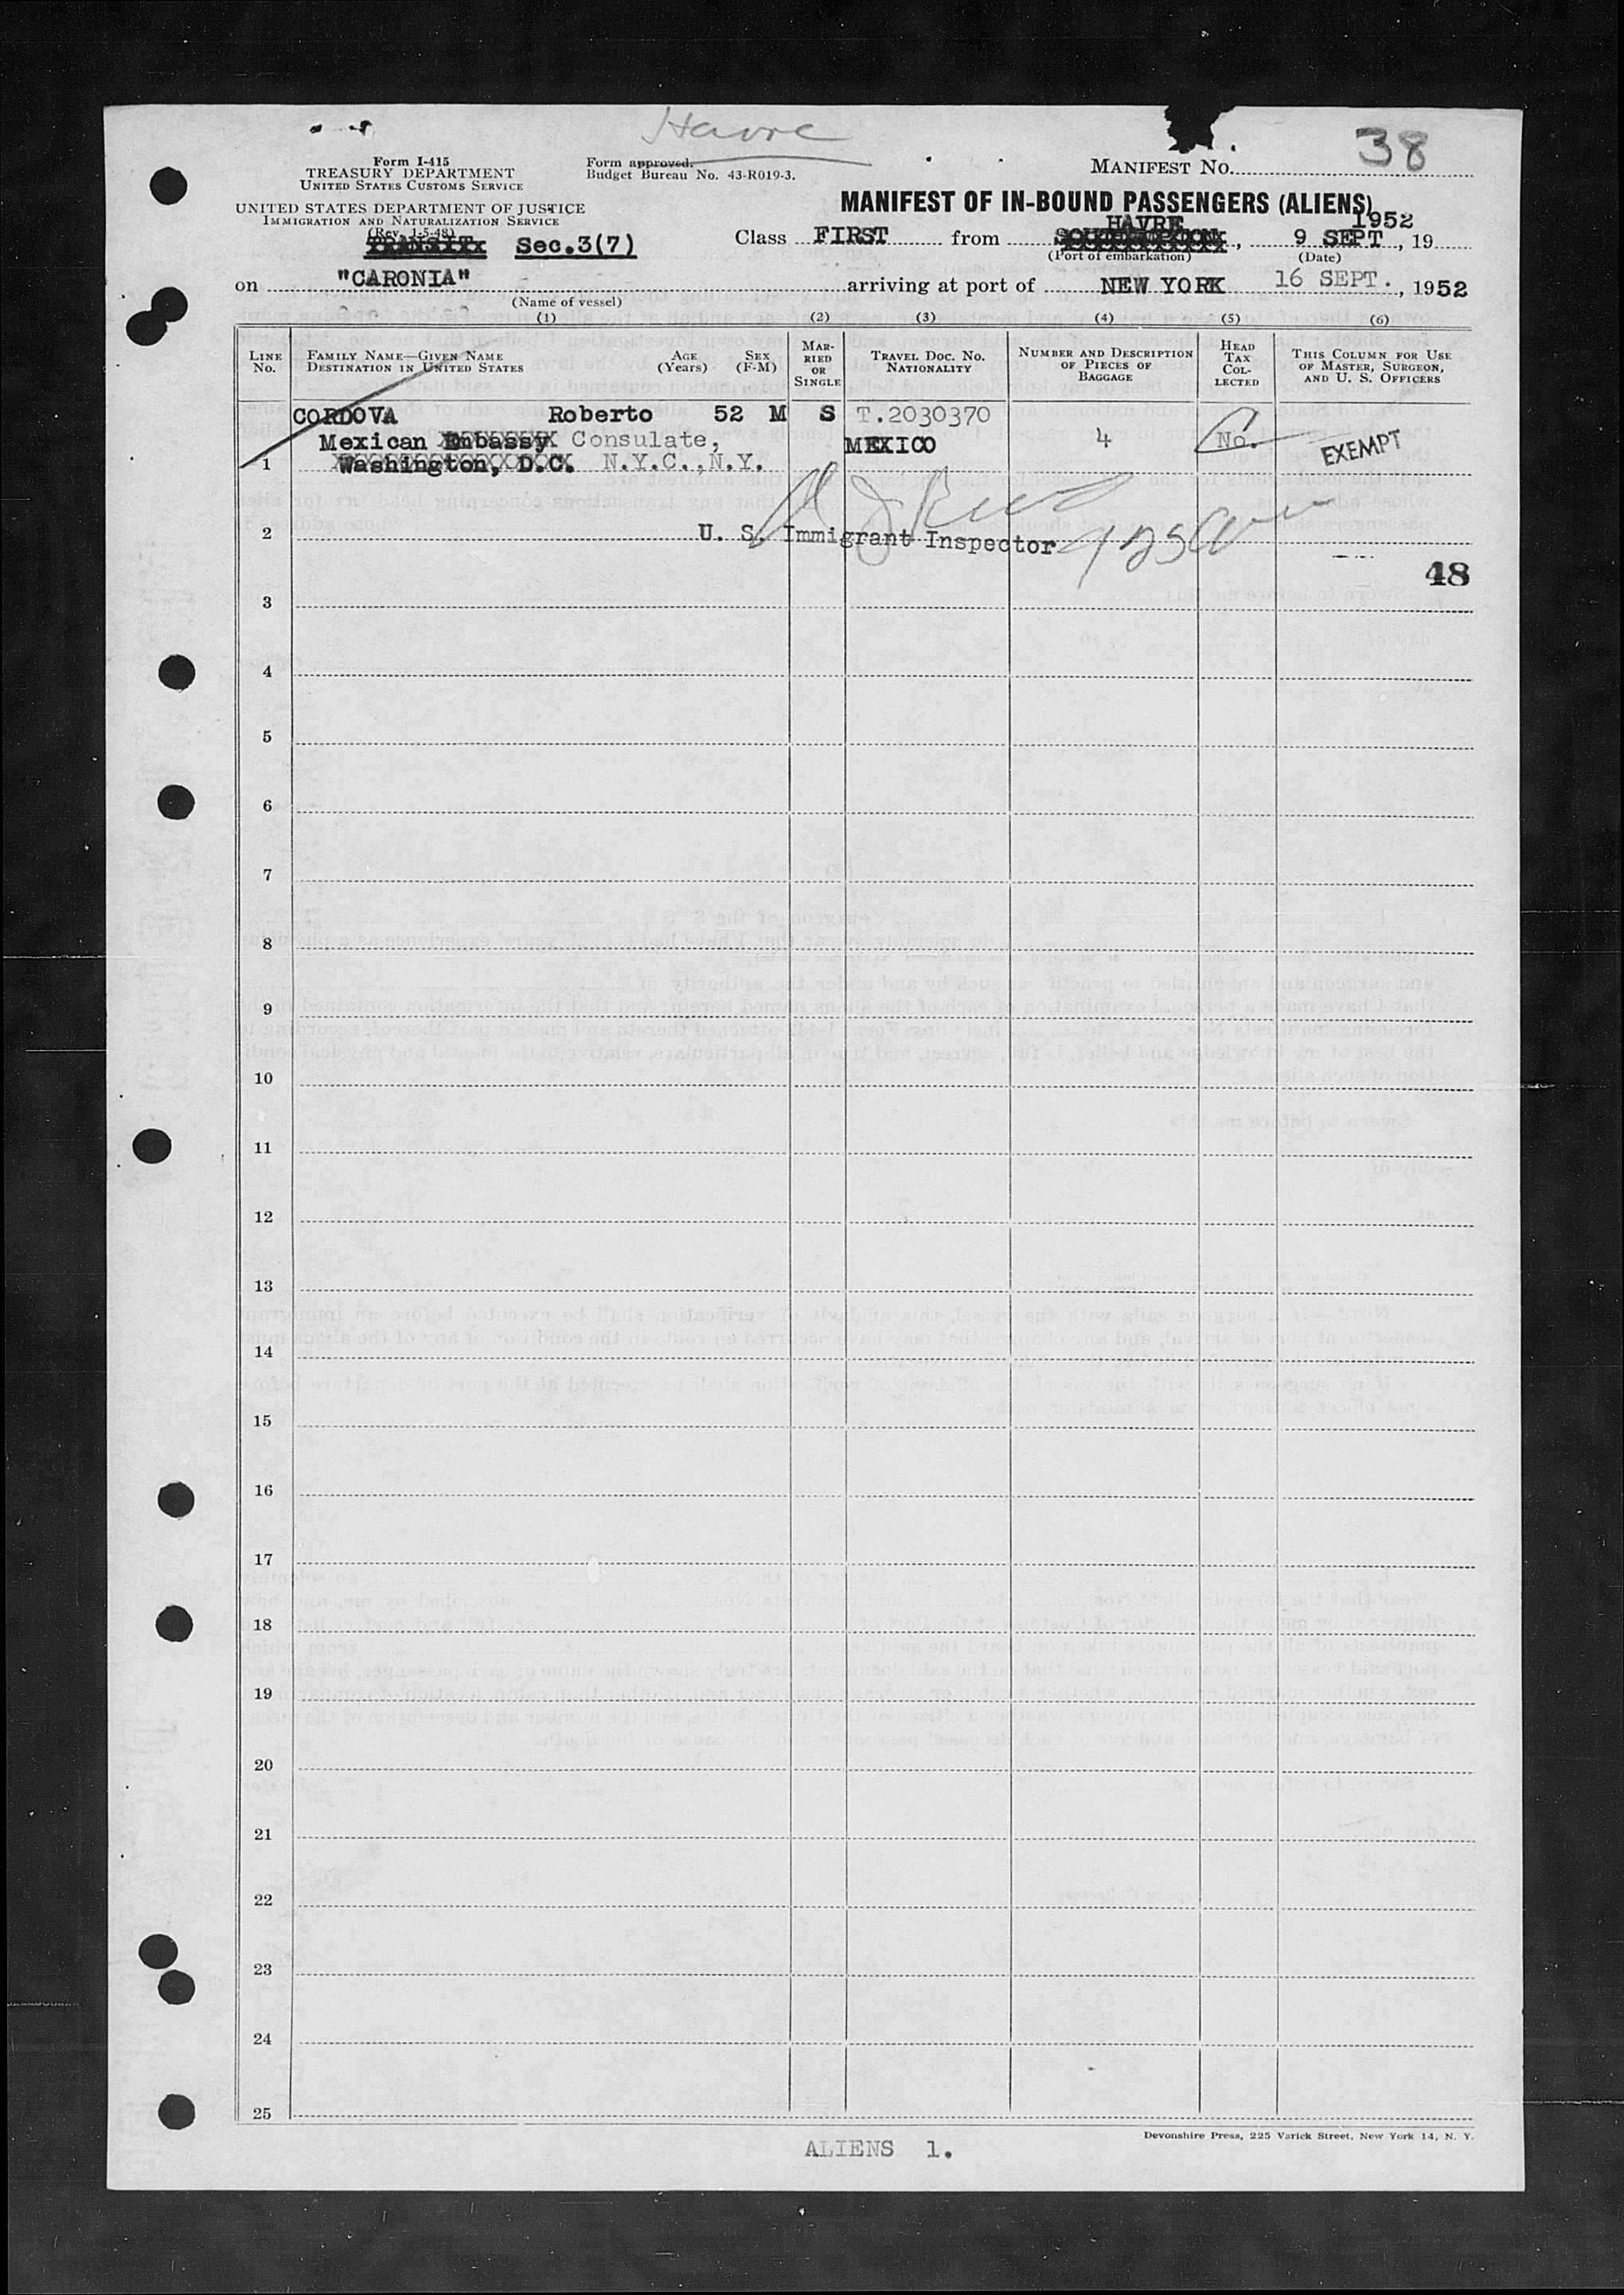 Havre
38
Form I-415
TREASURY DEPARTMENT
UNITED STATES CUSTOMS SERVICE
Form approved.
Budget Bureau No. 43-R019-3.
MANIFEST NO.
UNITED STATES DEPARTMENT OF JUSTICE
IMMIGRATION AND NATURALIZATION SERVICE
(Rev. 1-5-48)
MANIFEST OF IN-BOUND PASSENGERS (ALIENS)
TRANSIT Sec.3(7)
Class FIRST from HAVRE SOUTHAMPTON, 9 SEPT 1952, 19
(Port of embarkation) (Date)
on "CARONIA" arriving at port of NEW YORK 16 SEPT., 1952
(Name of vessel)
(1) (2) (3) (4) (5) (6)
LINE NO. FAMILY NAME—GIVEN NAME DESTINATION IN UNITED STATES AGE (Years) SEX (F-M) MARRIED OR SINGLE TRAVEL DOC. NO. NATIONALITY NUMBER AND DESCRIPTION OF PIECES OF BAGGAGE HEAD TAX COLLECTED THIS COLUMN FOR USE OF MASTER, SURGEON, AND U. S. OFFICERS
CORDOVA Roberto 52 M S T.2030370
Mexican Embassy Consulate, MEXICO 4 No. EXEMPT
1 Washington, D.C. N.Y.C.,N.Y.
2 U. S. Immigrant Inspector
48
3
4
5
6
7
8
9
10
11
12
13
14
15
16
17
18
19
20
21
22
23
24
25
Devonshire Press, 225 Varick Street, New York 14, N. Y.
ALIENS 1.